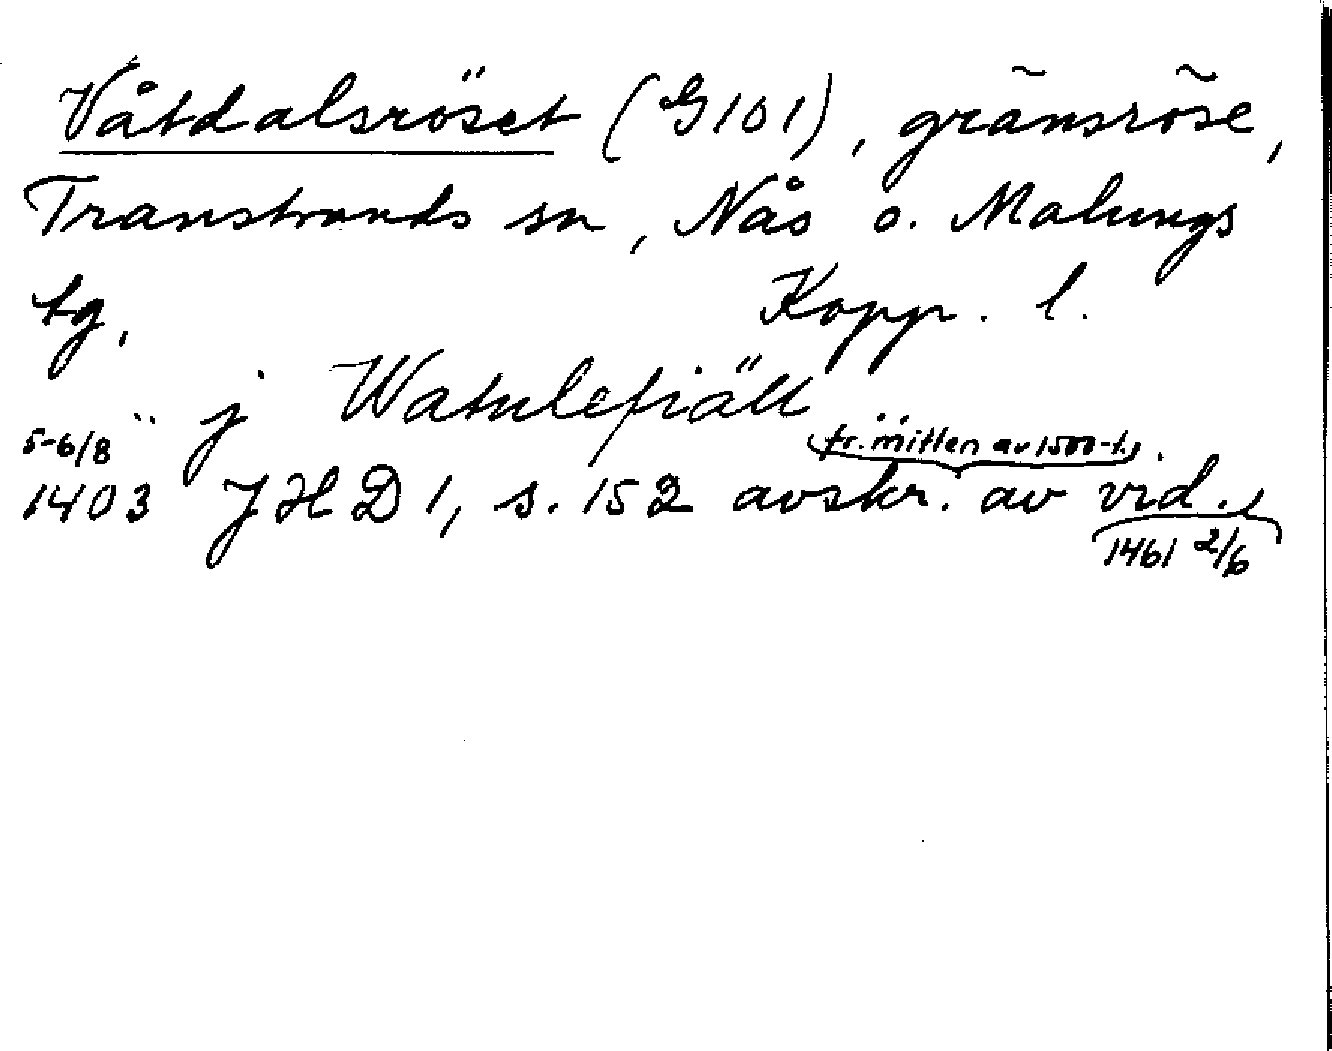 Våtdalsröset (G101), gränsröse,
Transtrands sn, Nås o. Malungs
tg, Kopp. l.
.. j Watulefiäll ..
5-6/8 fr. mitten av 1500-t.
1403 JHD 1, s. 152 avskr. av vid.,
1461 2/6